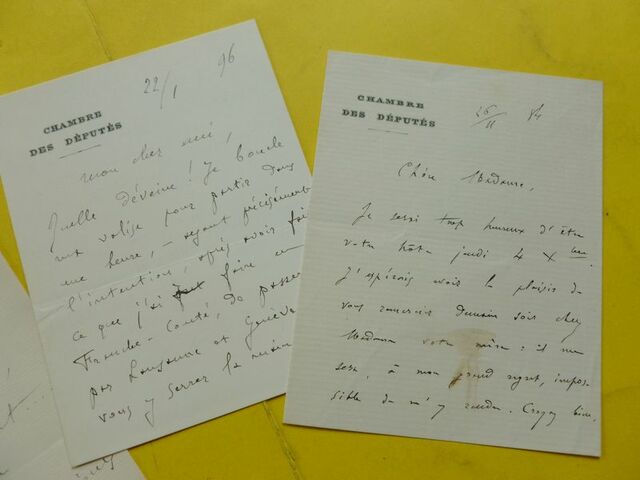 CHAMBRE
DES DÉPUTÉS
22/1 96
mon cher ami,
Quelle déveine! Je boucle
ma valise pour partir dans
une heure, – ayant précisément
l'intention, après avoir fait
ce que j'ai à faire en
Franche-Comté, de passer
par Lausanne et Genève
vous y serrer la main
CHAMBRE
DES DÉPUTÉS
26/11 94
Chère Madame,
Je serai trop heureux d'être
votre hôte jeudi 4 X bre.
J'espérais avoir le plaisir de
vous rencontrer demain soir chez
Madame votre mère: il me
sera, à mon grand regret, impos
sible de m'y rendre. Croyez bien,